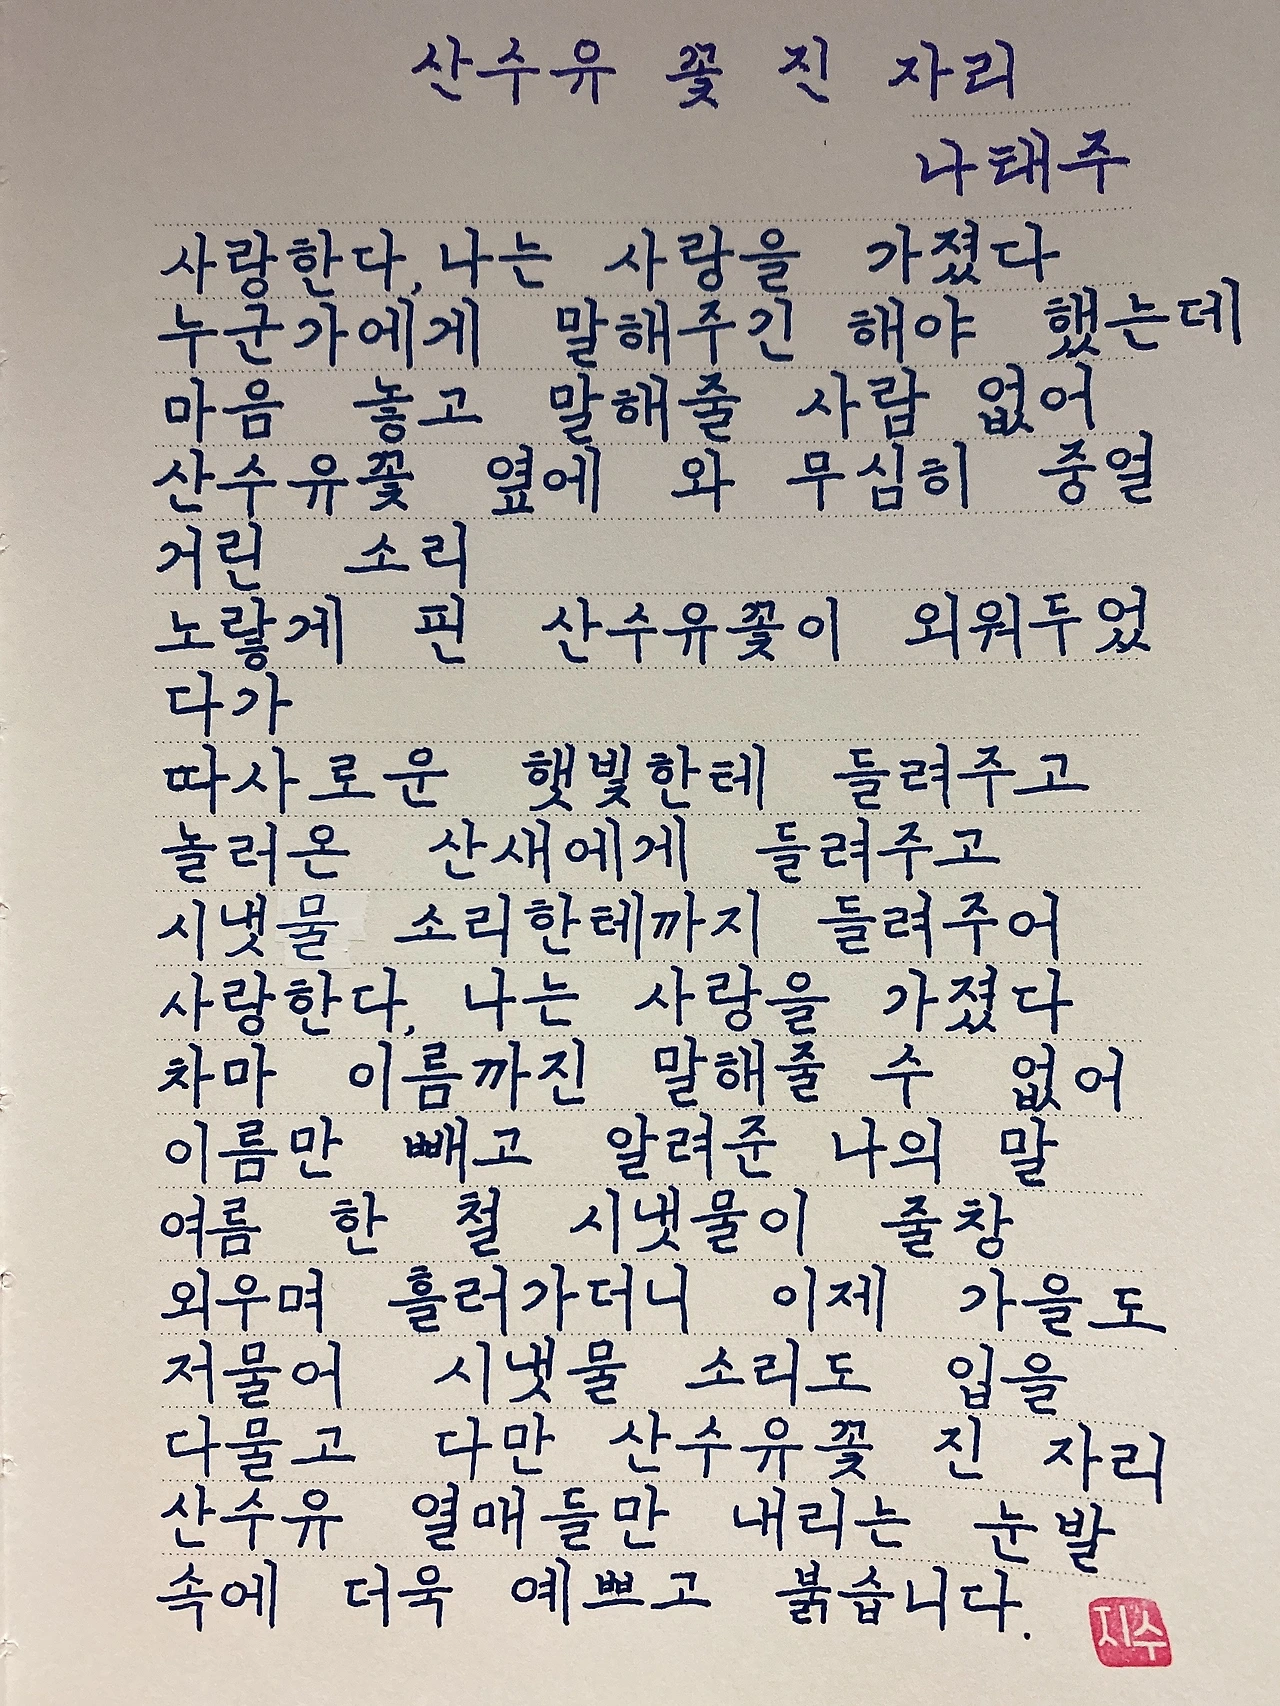 산수유 꽃 진 자리
나태주
사랑한다, 나는 사랑을 가졌다
누군가에게 말해주긴 해야 했는데
마음 놓고 말해줄 사람 없어
산수유꽃 옆에 와 무심히 중얼
거린 소리
노랗게 핀 산수유꽃이 외워두었
다가
따사로운 햇빛한테 들려주고
놀러온 산새에게 들려주고
시냇물 소리한테까지 들려주어
사랑한다, 나는 사랑을 가졌다
차마 이름까진 말해줄 수 없어
이름만 빼고 알려준 나의 말
여름 한 철 시냇물이 줄창
외우며 흘러가더니 이제 가을도
저물어 시냇물 소리도 입을
다물고 다만 산수유꽃 진 자리
산수유 열매들만 내리는 눈발
속에 더욱 예쁘고 붉습니다.
지수